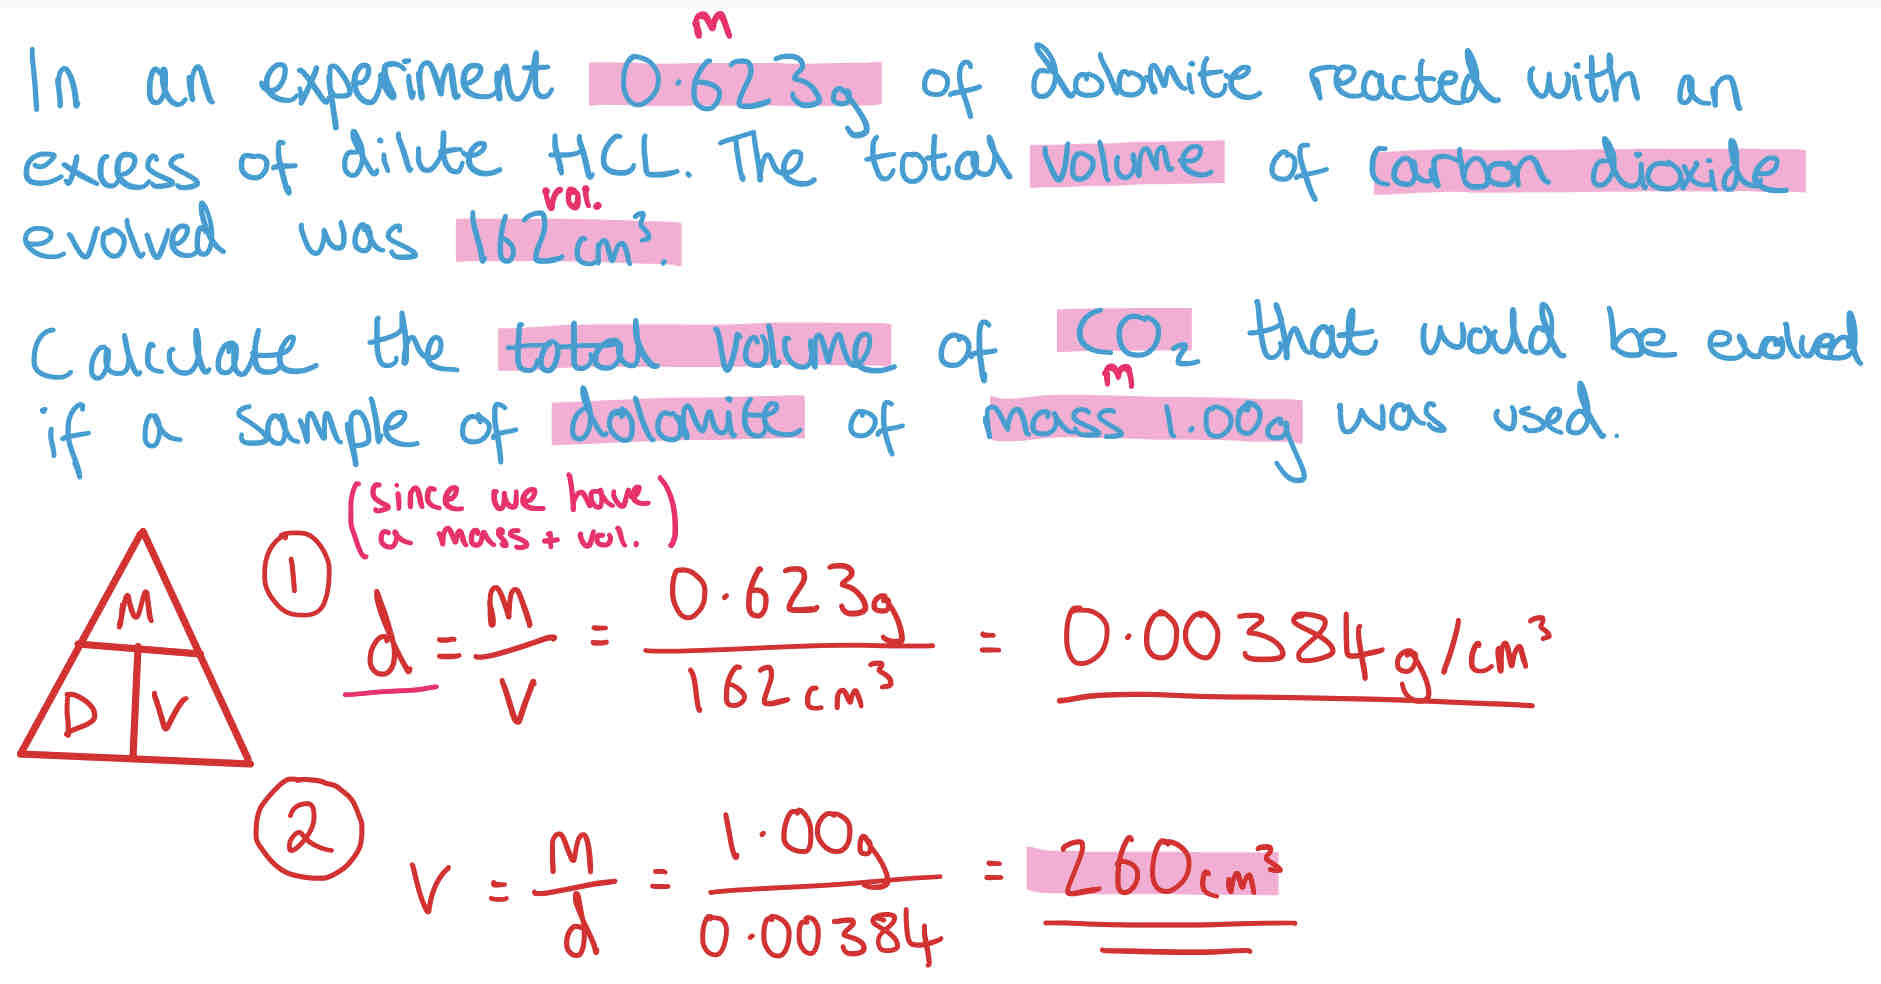 m
In an experiment 0.623g of dolomite reacted with an
excess of dilute HCL. The total volume of carbon dioxide
vol.
evolved was 162cm³.
Calculate the total volume of CO₂ that would be evolved
m
if a sample of dolomite of mass 1.00g was used.
(since we have
a mass + vol.)
M
D V
① d = M/V = 0.623g/162cm³ = 0.00384g/cm³
② V = M/d = 1.00g/0.00384 = 260cm³